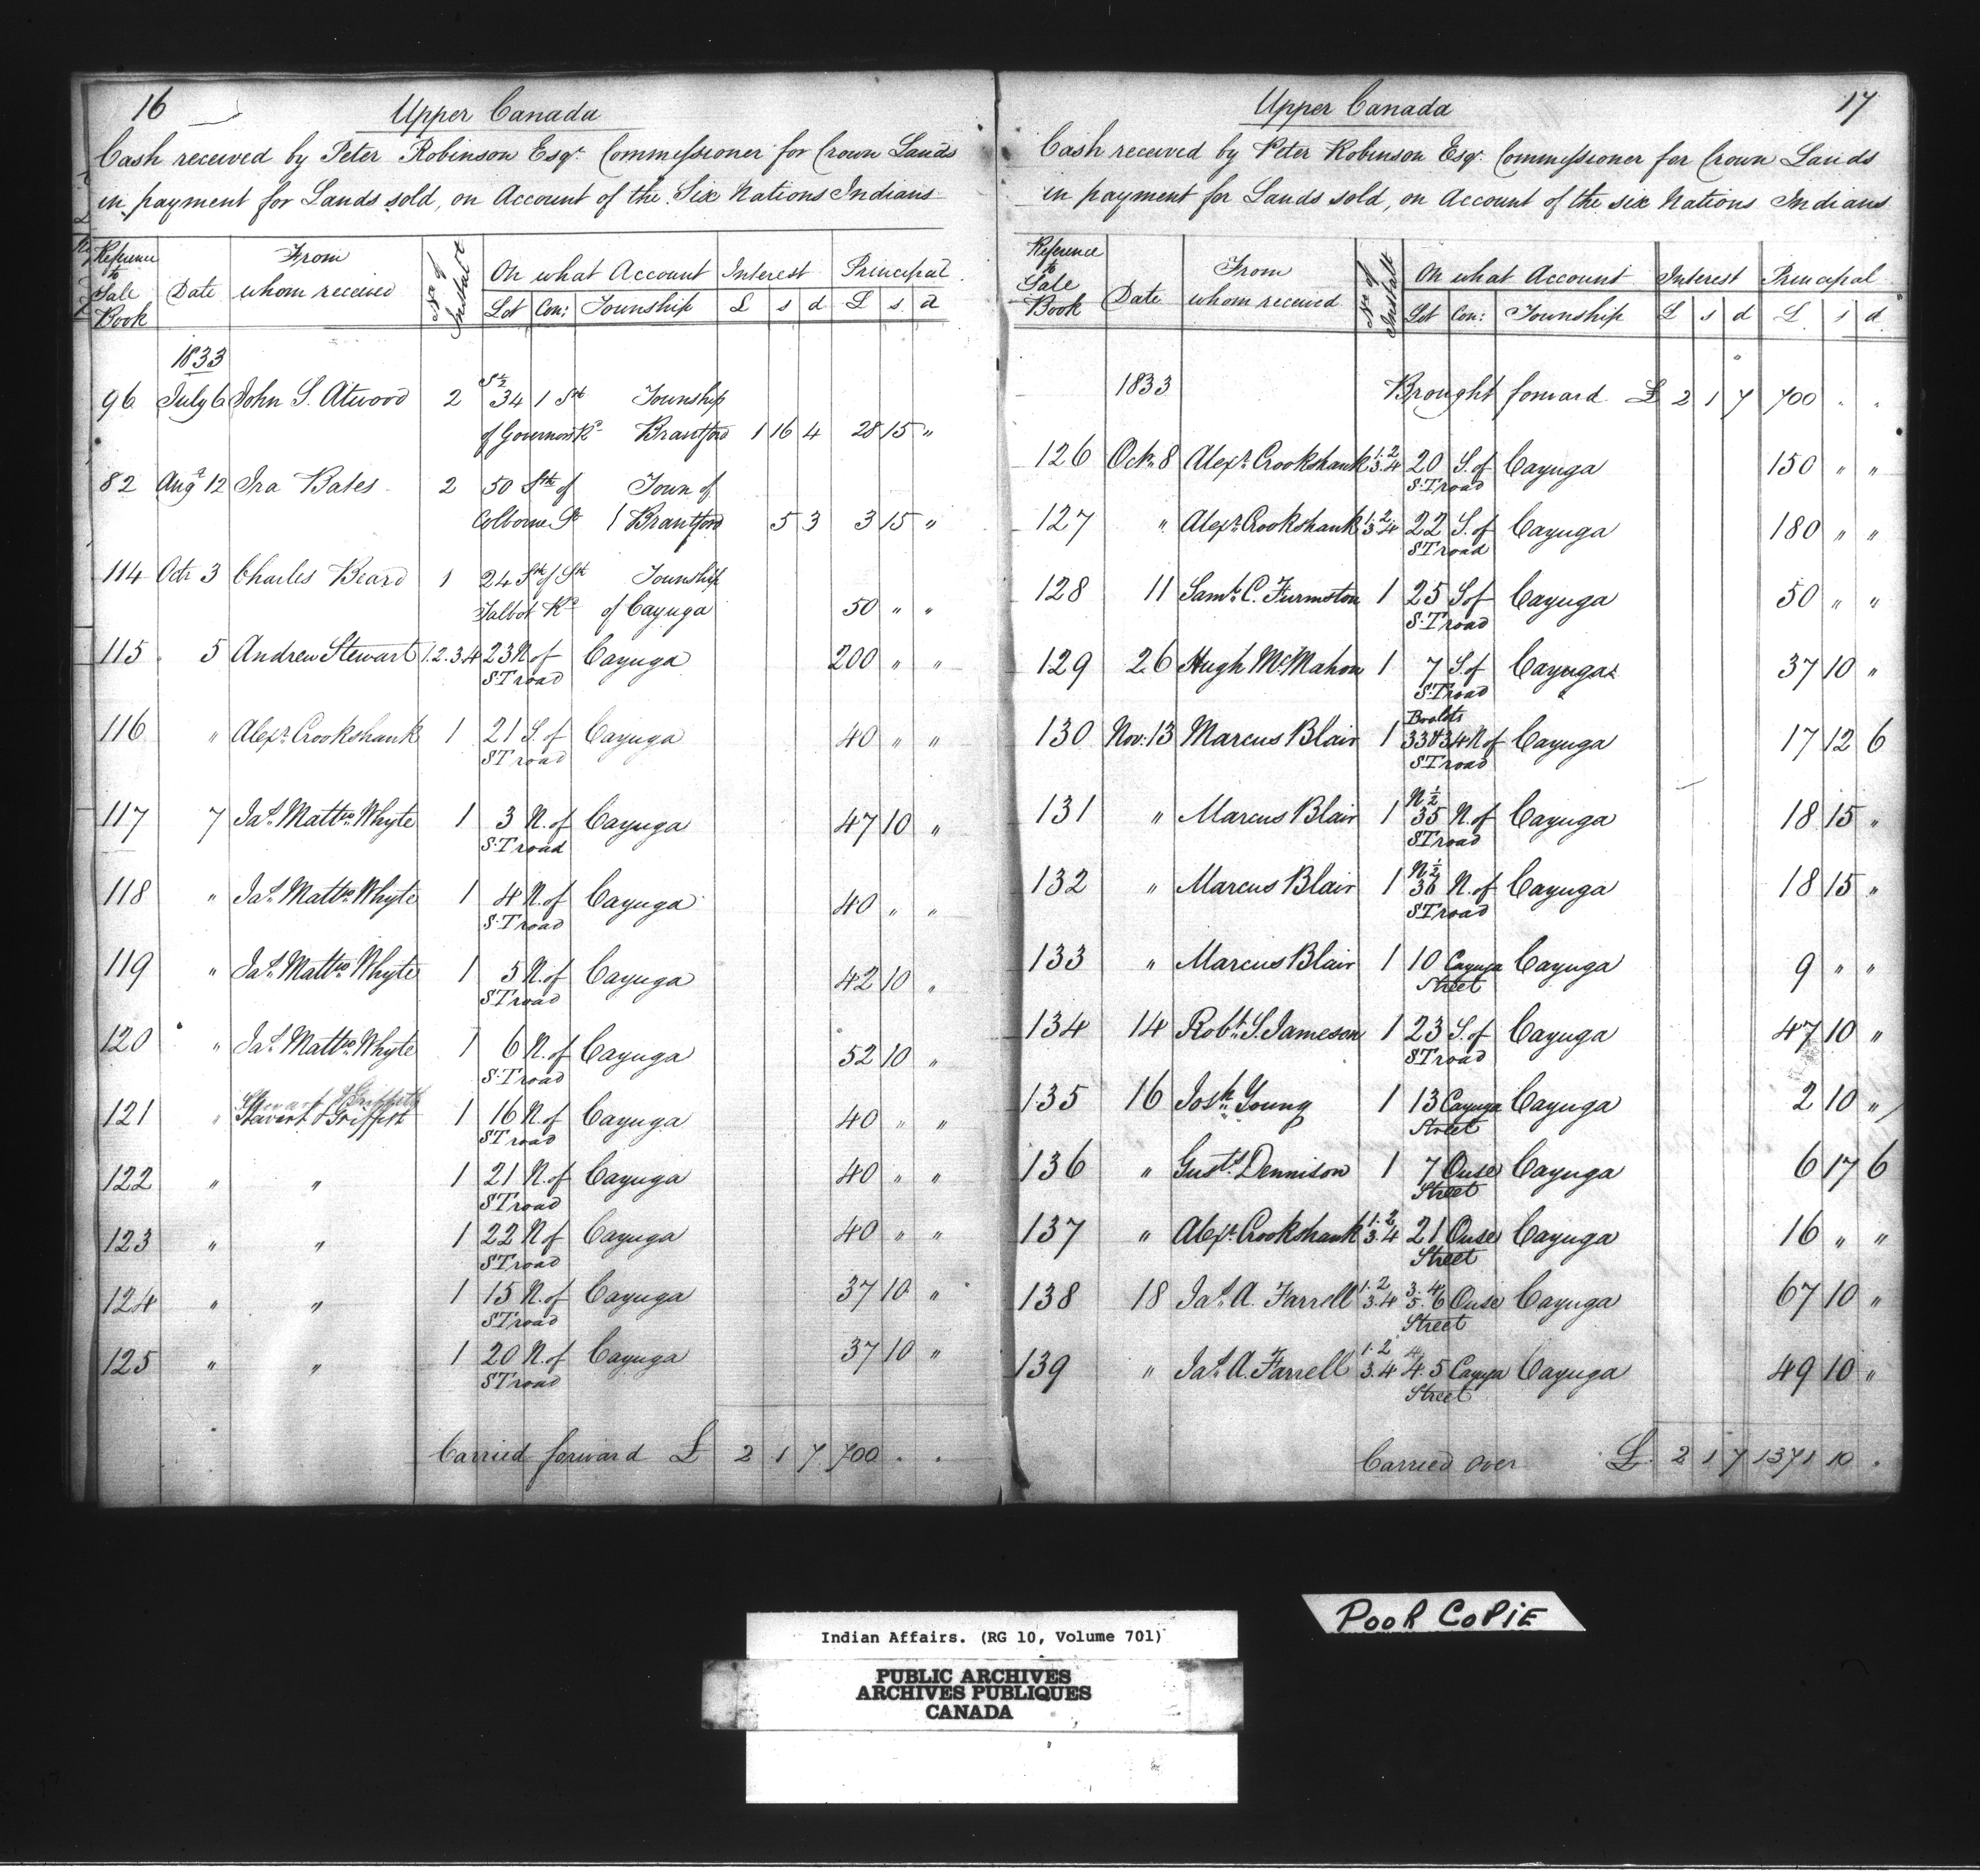 16
Upper Canada
Cash received by Peter Robinson Esqr. Commissioner for Crown Lands
in payment for Lands sold, on Account of the Six Nations Indians
Reference to Sale Book | Date | From whom received | No of Instalt | On what Account | Interest | Principal
Lot | Con: | Township | £ | s | d | £ | s | d
1833
96 July 6 John S. Atwood 2 S½ 34 1 St Township
of Governors Rd Brantford 1 16 4 28 15 "
82 Augt 12 Ira Bates 2 50 Sth of Town of
Colborne St Brantford 5 3 3 15 "
114 Octr 3 Charles Beard 1 24 Sth of St Township
Talbot Rd of Cayuga 50 " "
115 5 Andrew Stewart 1.2.3.4 23 N of Cayuga 200 " "
S.T road
116 " Alexr Crookshank 1 21 S. of Cayuga 40 " "
ST road
117 7 Jas. Mattw Whyte 1 3 N. of Cayuga 47 10 "
S.T road
118 " Jas. Mattw Whyte 1 4 N. of Cayuga 40 " "
S.T road
119 " Jas. Mattw Whyte 1 5 N. of Cayuga 42 10 "
ST road
120 " Jas. Mattw Whyte 1 6 N. of Cayuga 52 10 "
S.T road
Stewart & Griffith
121 " Stewart & Griffith 1 16 N. of Cayuga 40 " "
ST road
122 " " 1 21 N. of Cayuga 40 " "
ST road
123 " " 1 22 N. of Cayuga 40 " "
ST road
124 " " 1 15 N. of Cayuga 37 10 "
ST road
125 " " 1 20 N. of Cayuga 37 10 "
ST road
Carried forward £ 2 1 7 700 . .
Upper Canada
17
Cash received by Peter Robinson Esqr. Commissioner for Crown Lands
in payment for Lands sold, on Account of the six Nations Indians
Reference to Sale Book | Date | From whom received | No of Instalt | On what Account | Interest | Principal
Lot | Con: | Township | £ | s | d | £ | s | d
1833 Brought forward £ 2 1 7 700 . .
126 Octr. 8 Alexr. Crookshank 1.2 3.4 20 S. of Cayuga 150 " "
S.T road
127 " Alexr. Crookshank 1.2 3.4 22 S. of Cayuga 180 " "
ST road
128 11 Saml. C. Furmston 1 25 S of Cayuga 50 " "
S.T road
129 26 Hugh McMahon 1 7 S. of Cayuga 37 10 "
S.T road
130 Nov: 13 Marcus Blair 1 33 & 34 N of Cayuga 17 12 6
ST road
131 " Marcus Blair 1 N½ 35 N. of Cayuga 18 15 "
ST road
132 " Marcus Blair 1 N½ 36 N. of Cayuga 18 15 "
ST road
133 " Marcus Blair 1 10 Cayuga Cayuga 9 " "
Street
134 14 Robt. S. Jameson 1 23 S. of Cayuga 47 10 "
ST road
135 16 Josh. Young 1 13 Cayuga Cayuga 2 10 "
Street
136 " Gusts Dennison 1 7 Ouse Cayuga 6 17 6
Street
137 " Alexr. Crookshank 1.2 3.4 21 Ouse Cayuga 16 " "
Street
138 18 Jas. A. Farrell 1.2 3.4 3.4 5.6 Ouse Cayuga 67 10 "
Street
139 " Jas. A. Farrell 1.2 3.4 4.5 Cayuga Cayuga 49 10 "
Street
Carried over £ 2 1 7 1371 10 .
POOR COPIE
Indian Affairs. (RG 10, Volume 701)
PUBLIC ARCHIVES
ARCHIVES PUBLIQUES
CANADA